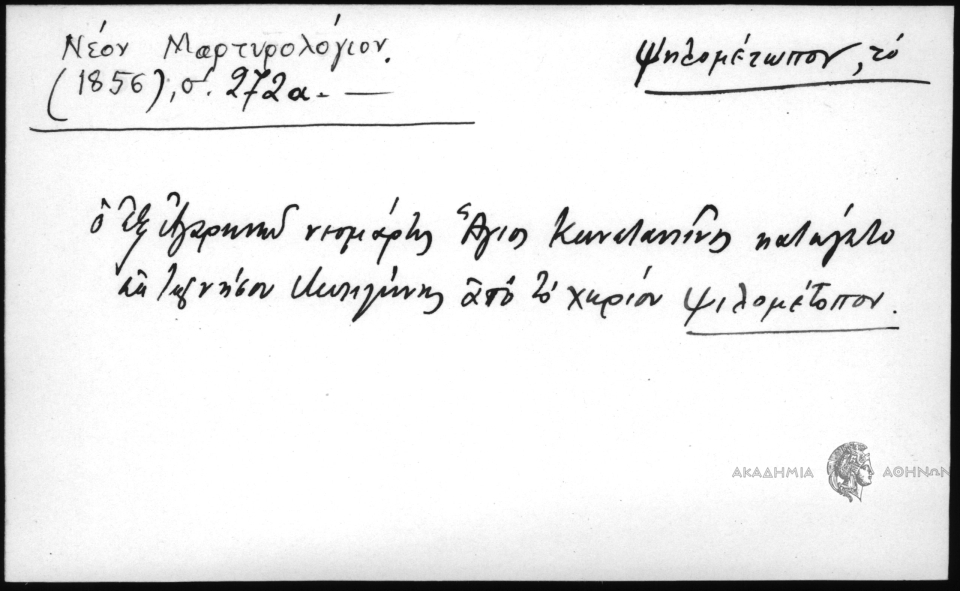 Νέον Μαρτυρολόγιον.
(1856), σ. 272α. —
Ψηλομέτωπον, τό
ὁ ἐξ Ἀγαρηνῶν νεομάρτυς Ἅγιος Κωνσταντῖνος κατάγετο
ἐκ τῆς νήσου Μυτιλήνης ἀπό τό χωρίον Ψιλομέτοπον.
ΑΚΑΔΗΜΙΑ ΑΘΗΝΩΝ